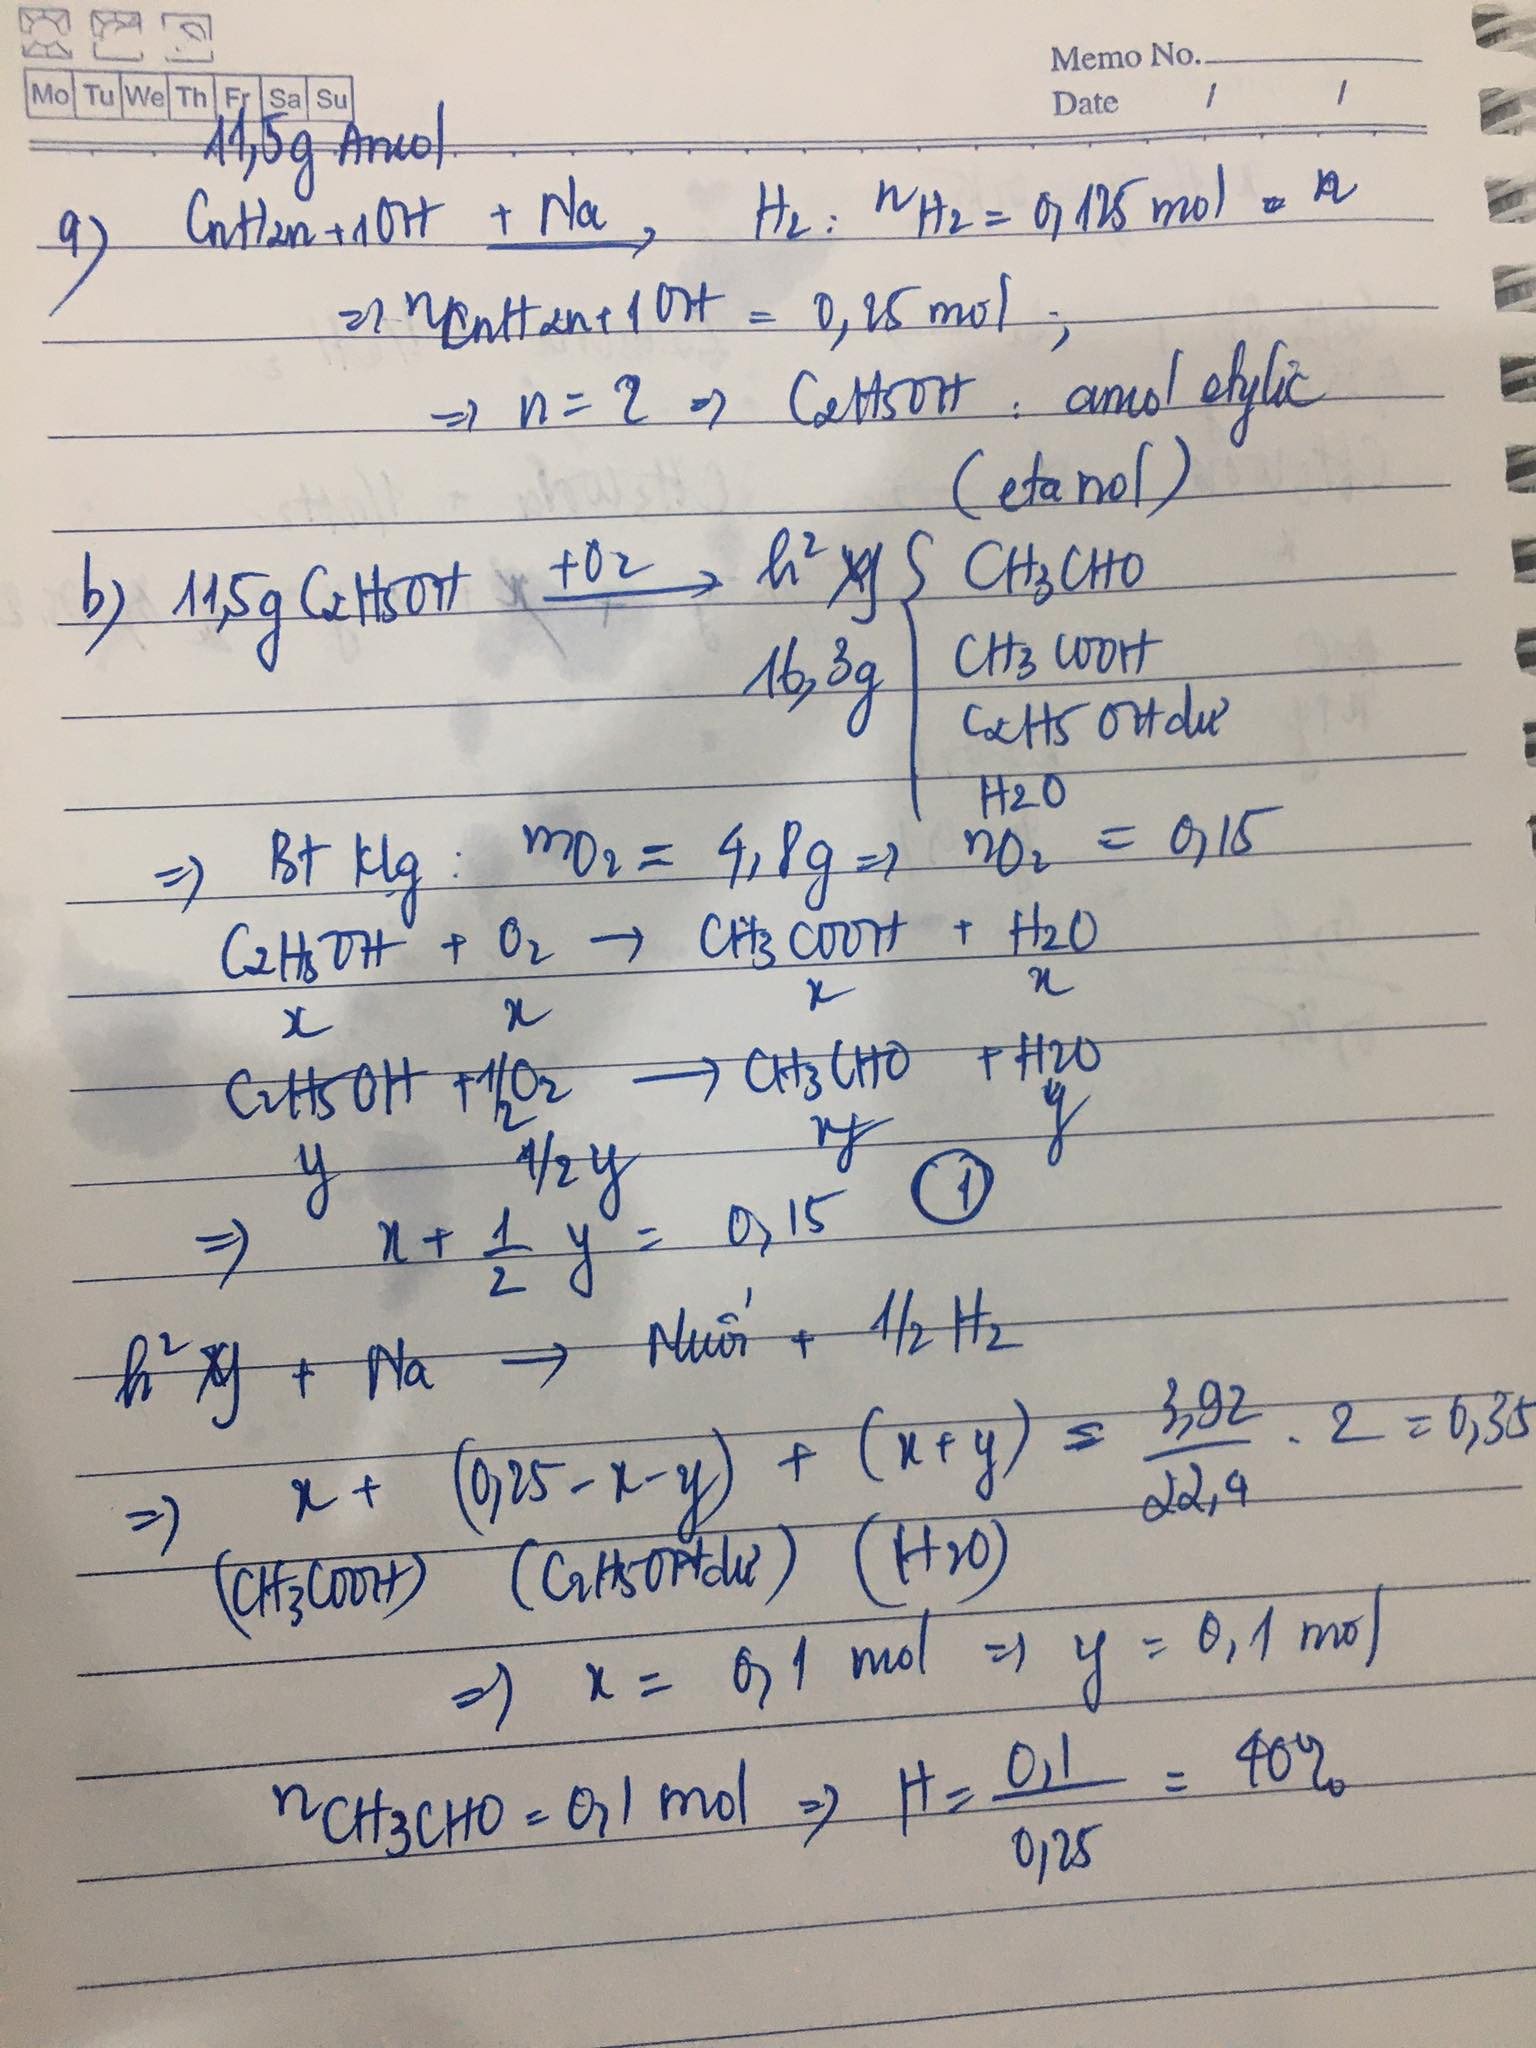 Memo No.
Mo Tu We Th Fr Sa Su
Date / /
11,5g Ancol
a) CnH2n+1OH + Na → H2 : nH2 = 0,125 mol =
=> nCnH2n+1OH = 0,25 mol ;
=> n = 2 => C2H5OH : ancol etylic
(etanol)
b) 11,5g C2H5OH +O2 → h² X { CH3CHO
16,3g CH3COOH
C2H5OH dư
H2O
=> Bt klg : mO2 = 4,8g => nO2 = 0,15
C2H5OH + O2 → CH3COOH + H2O
x x x x
C2H5OH + 1/2O2 → CH3CHO + H2O
y 1/2y y y
=> x + 1/2 y = 0,15 (1)
h² X + Na → Muối + 1/2 H2
=> x + (0,25-x-y) + (x+y) = 3,92/22,4 . 2 = 0,35
(CH3COOH) (C2H5OH dư) (H2O)
=> x = 0,1 mol => y = 0,1 mol
nCH3CHO = 0,1 mol => H = 0,1/0,25 = 40%